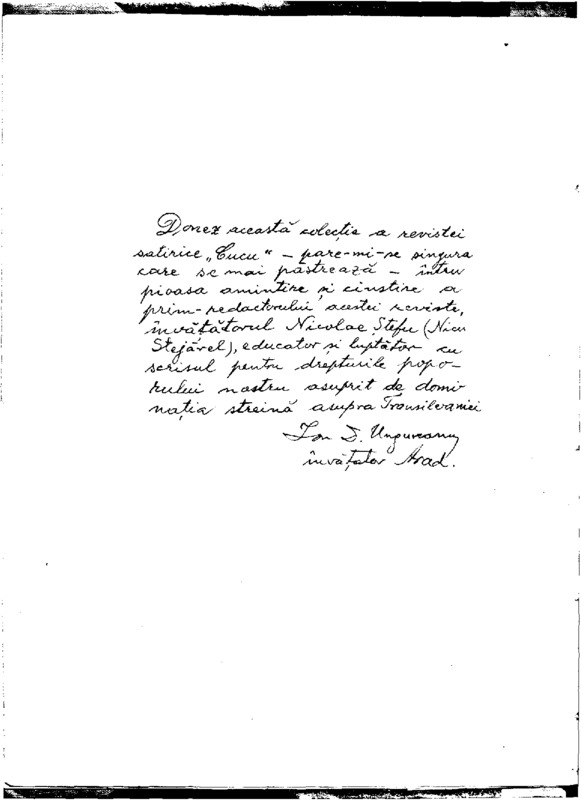 Donez această colecție a revistei
satirice „Cucu" – pare-mi-se singura
care se mai păstrează – întru
pioasa amintire și cinstire a
prim-redactorului acestei reviste,
învățătorul Nicolae Ștefu (Nicu
Stejărel), educator și luptător cu
scrisul pentru drepturile popo-
rului nostru asuprit de domi
nația streină asupra Transilvaniei
Ion T. Ungureanu
învățător Arad.